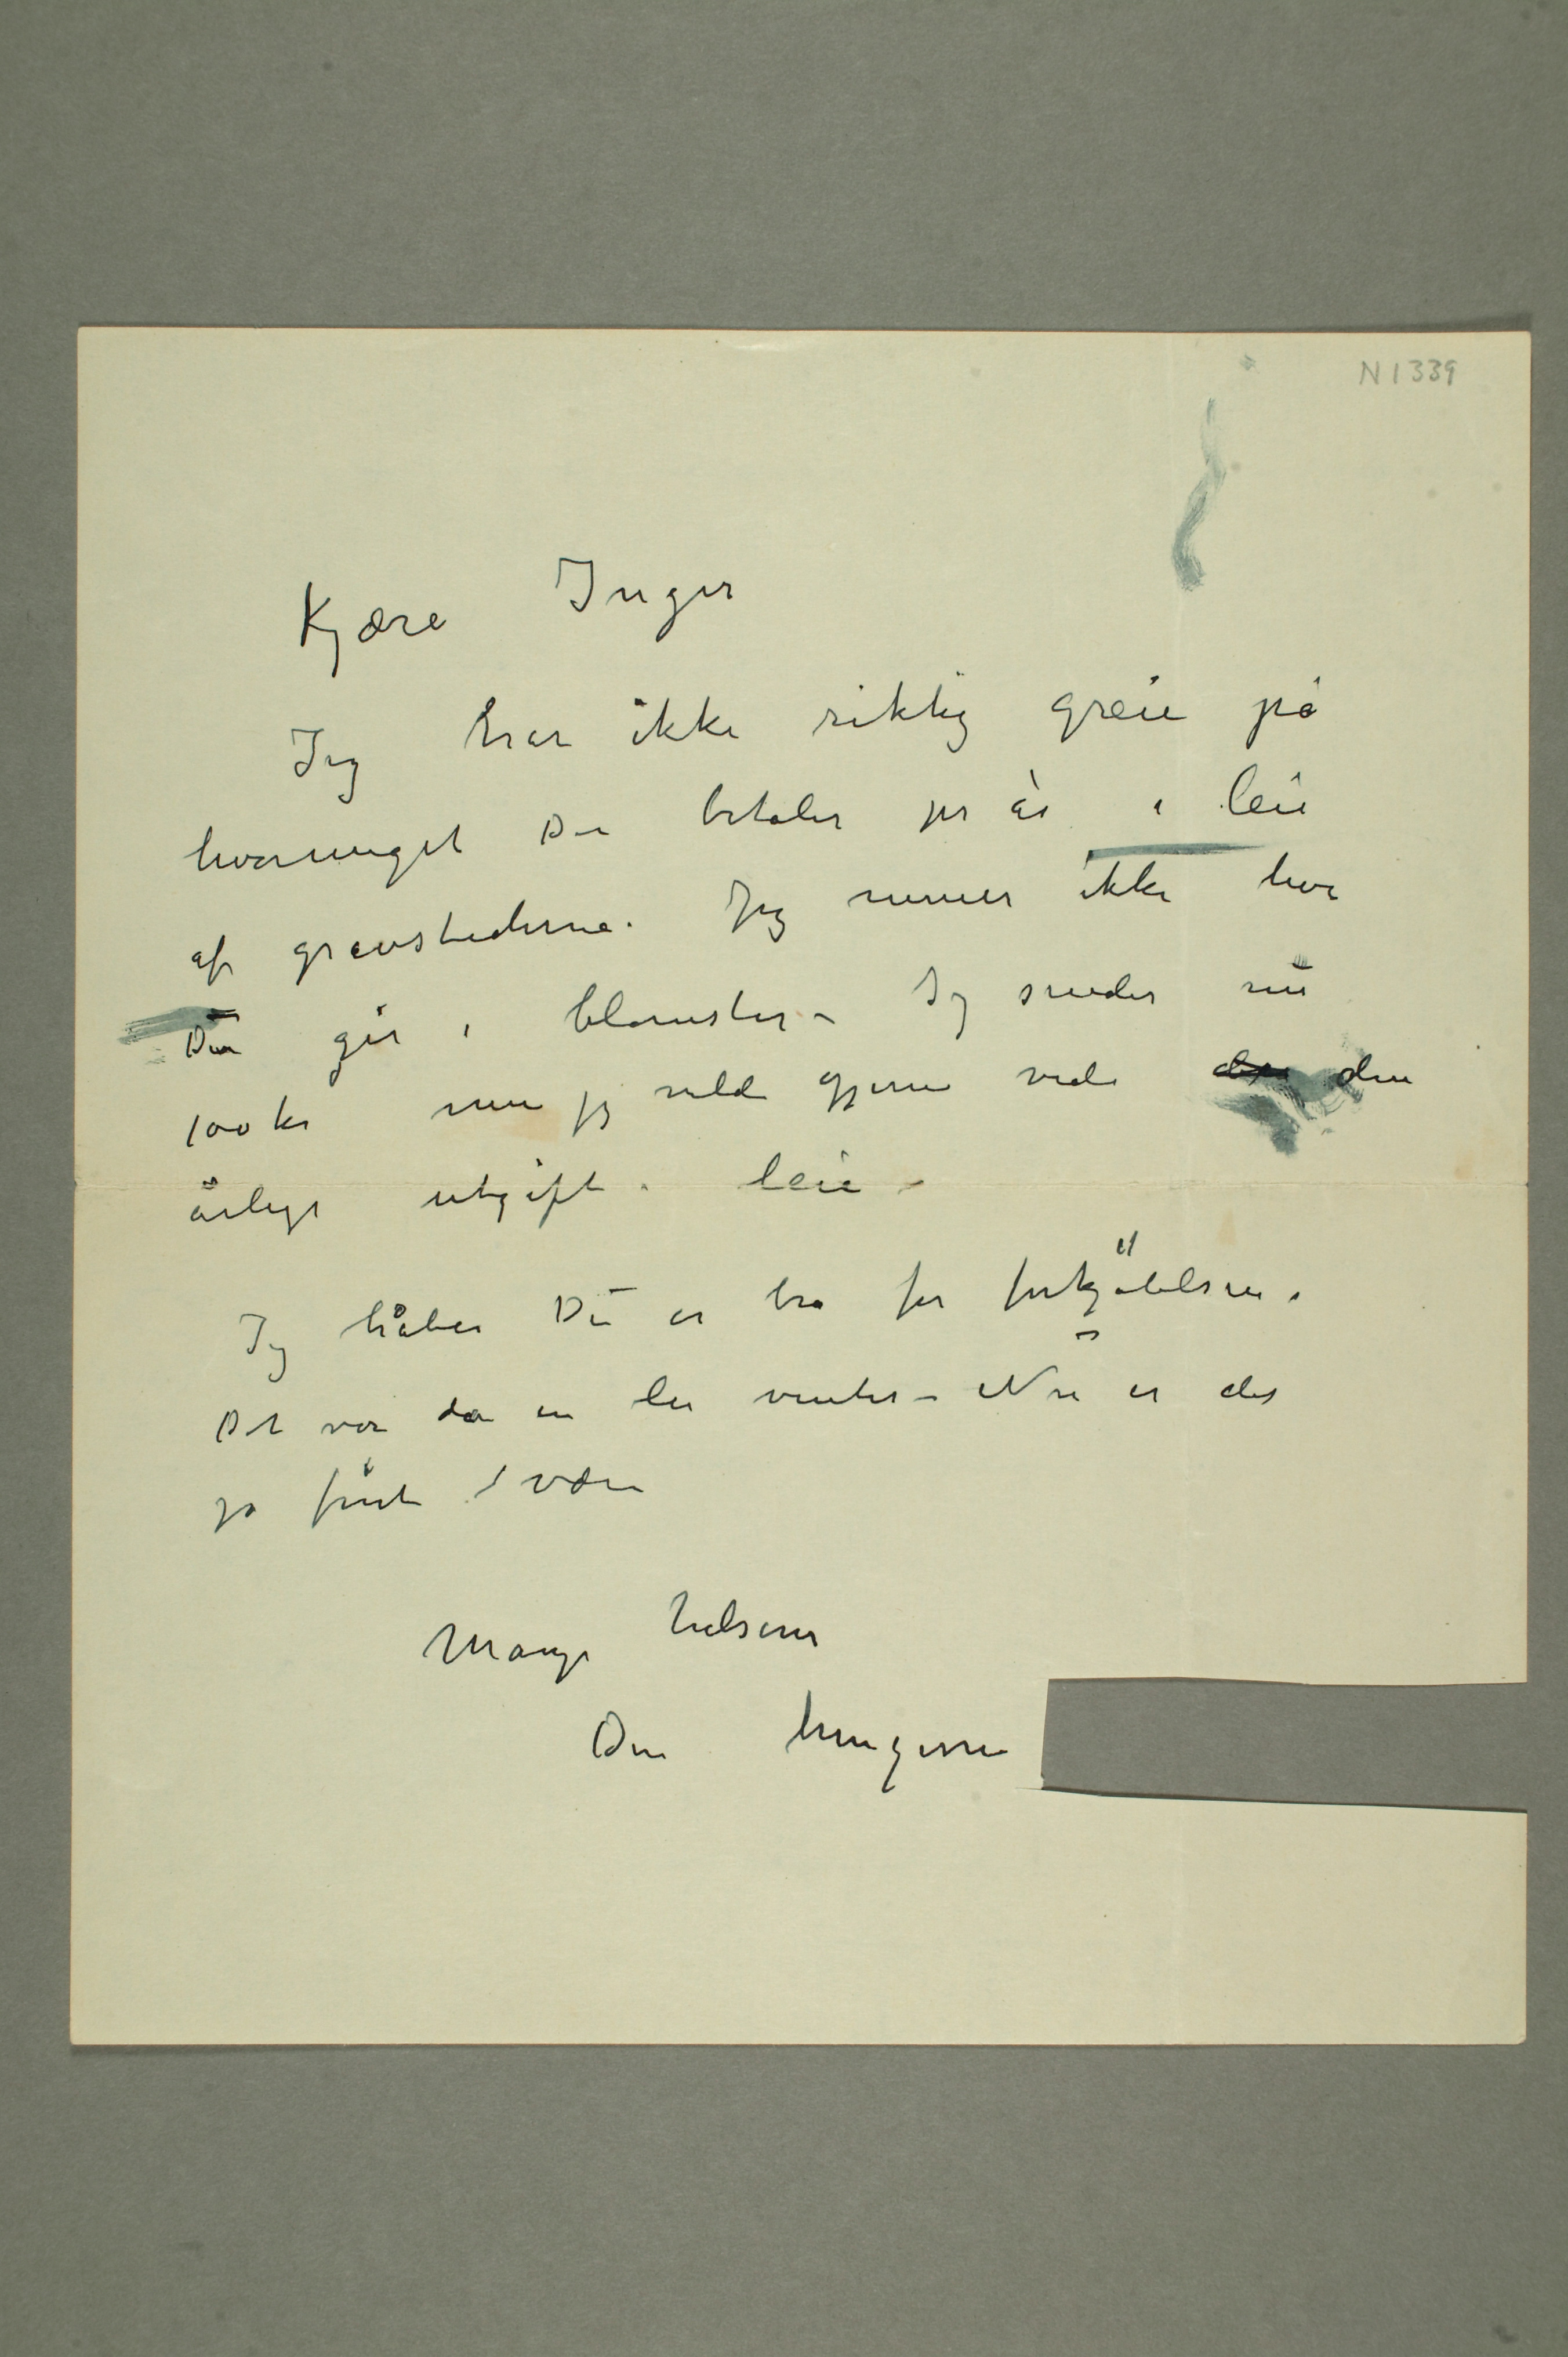 N 1339
Kjære Inger
Jeg har ikke riktig greie på
hvormeget Du betaler pr år i leie
af gravstederne. Jeg mener ikke hva
Du gir i blomster – Jeg sender nu
100 kr men jeg vilde gjerne vide den den
årlige utgift i leie –
Jeg håber Du er bra for forkjölelsen.
Det var da en lei vinter – Nu er det
jo fint i været
Mange hilsener
Din hengivne